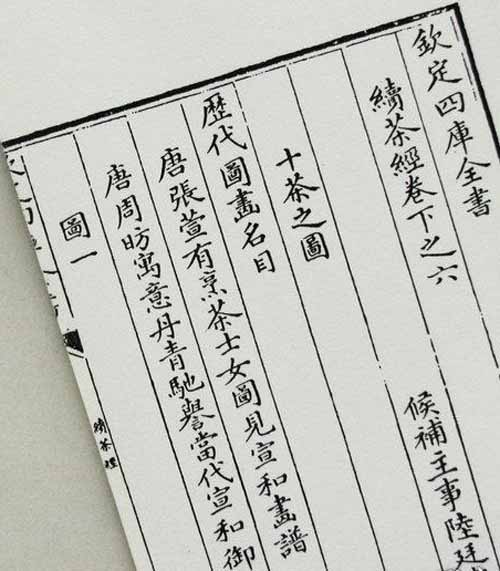 欽定四庫全書
續茶經卷下之六
候補主事陸廷
十茶之圖
歷代圖畫名目
唐張萱有烹茶士女圖見宣和畫譜
唐周昉寓意丹青馳譽當代宣和御
圖一
續茶經